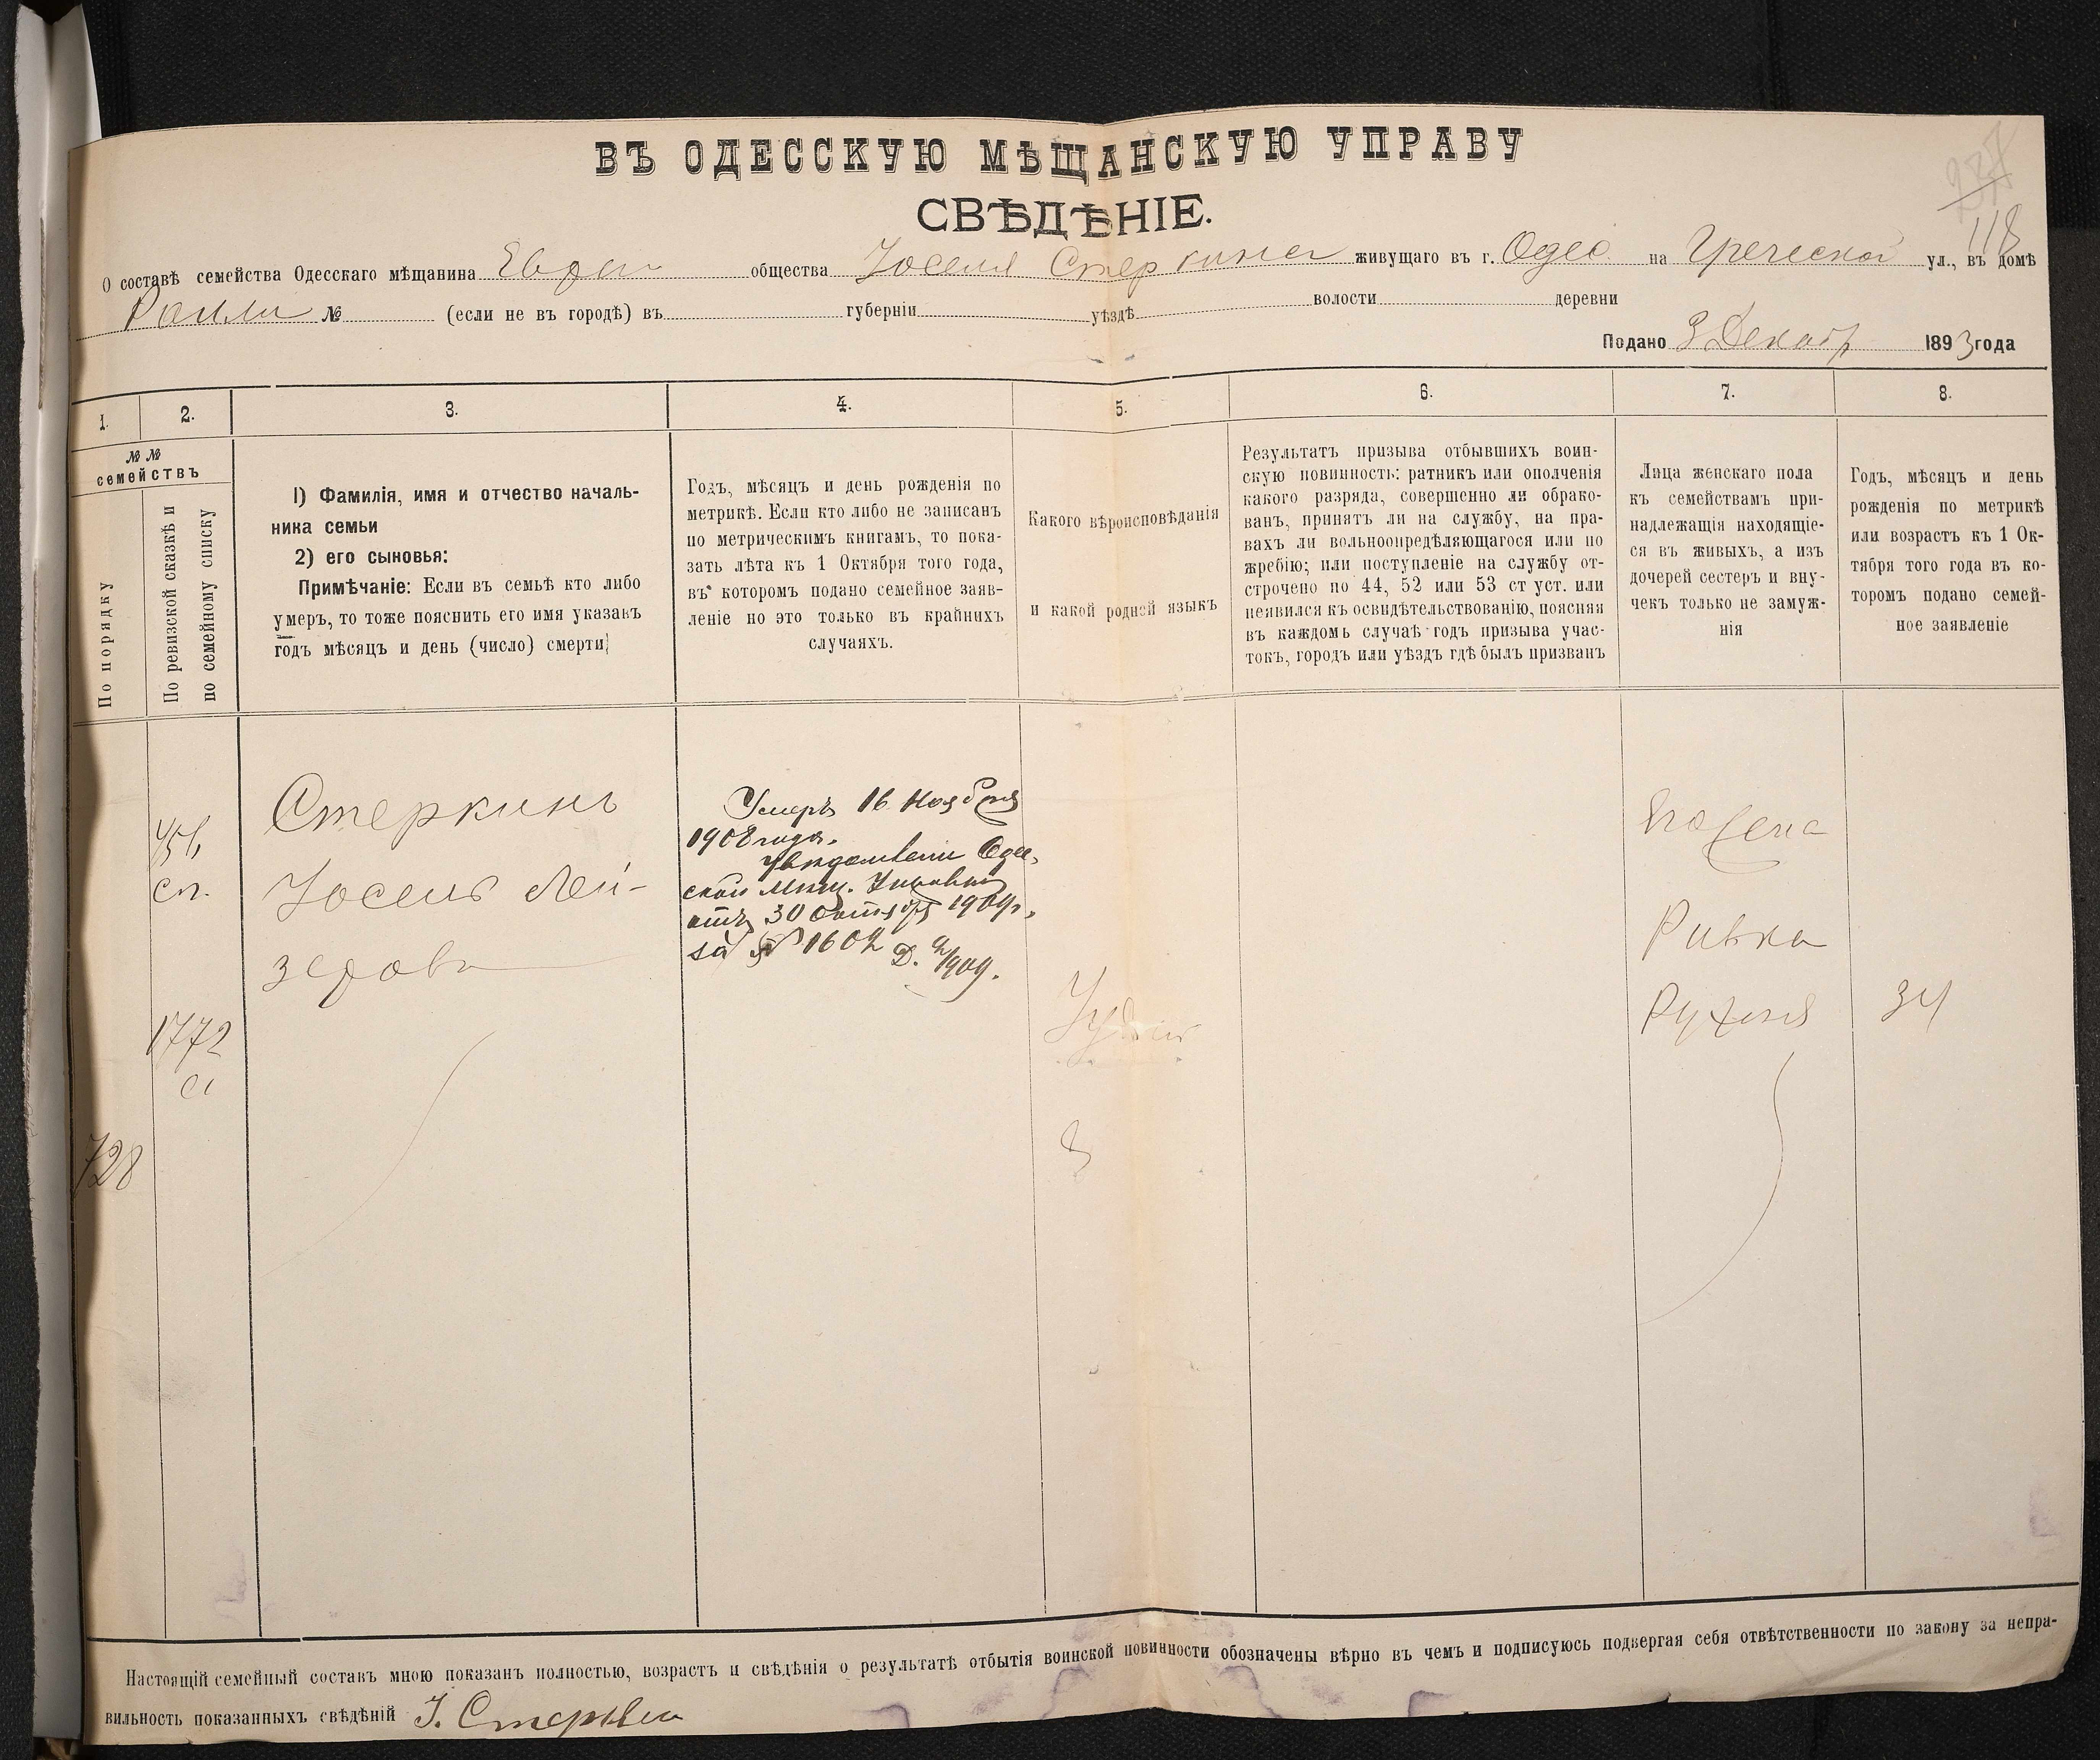 ВЪ ОДЕССКУЮ МѢЩАНСКУЮ УПРАВУ
СВѢДѢНІЕ.
118
О составѣ семейства Одесскаго мѣщанина Евреи общества Іоселя Стеркина живущаго въ г. Одес на Греческой ул., въ домѣ
Ралли № (если не въ городѣ) въ губерніи уѣздѣ волости деревни
Подано 3 Декабр 1893 года
1. 2. 3. 4. 5. 6. 7. 8.
№ №
семействъ
По порядку
По ревизской сказкѣ и
по семейному списку
1) Фамилія, имя и отчество началь-
ника семьи
2) его сыновья:
Примѣчаніе: Если въ семьѣ кто либо
умеръ, то тоже пояснить его имя указавъ
годъ мѣсяцъ и день (число) смерти
Годъ, мѣсяцъ и день рожденія по
метрикѣ. Если кто либо не записанъ
по метрическимъ книгамъ, то пока-
зать лѣта къ 1 Октября того года,
въ котором подано семейное заяв-
леніе но это только въ крайнихъ
случаяхъ.
Какого вѣроисповѣданія
и какой родной языкъ
Результатъ призыва отбывшихъ воин-
скую повинность: ратникъ или ополченія
какого разряда, совершенно ли обрако-
ванъ, принятъ ли на службу, на пра-
вахъ ли вольноопредѣляющагося или по
жребію; или поступленіе на службу от-
строчено по 44, 52 или 53 ст уст. или
неявился къ освидѣтельствованію, поясняя
въ каждомъ случаѣ годъ призыва учас-
токъ, городъ или уѣздъ гдѣ былъ призванъ
Лица женскаго пола
къ семействамъ при-
надлежащія находящіе-
ся въ живыхъ, а изъ
дочерей сестеръ и вну-
чекъ только не замуж-
нія
Годъ, мѣсяцъ и день
рожденія по метрикѣ
или возрастъ къ 1 Ок-
тября того года въ ко-
торомъ подано семей-
ное заявленіе
456
сп.
1772
728
Стеркинъ
Іосель Лей-
зеровъ
Умеръ 16 Ноября
1908 года.
Увѣдомленіе Одес-
ской Мѣщ. Управы
отъ 30 Октября 1909 г.
за № 1602 Д.
Іудей
Его жена
Ривка
Рухля 34
Настоящій семейный составъ мною показанъ полностью, возрастъ и свѣдѣнія о результатѣ отбытія воинской повинности обозначены вѣрно въ чемъ и подписуюсь подвергая себя отвѣтственности по закону за непра-
вильность показанныхъ свѣдѣній І. Стеркин